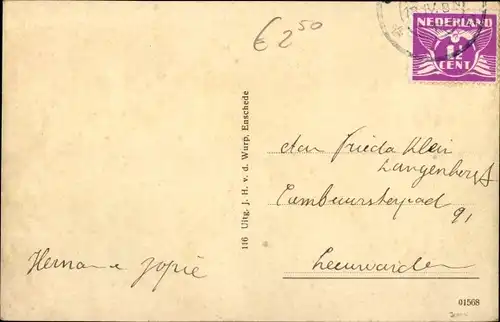 € 2 50
NEDERLAND
1½
CENT
116 Uitg. J. H. v. d. Wurp, Enschede
den Frieda Klein
Langenberg
Cambuursterpad
91
Leeuwarden
Hermane Jopie
01568